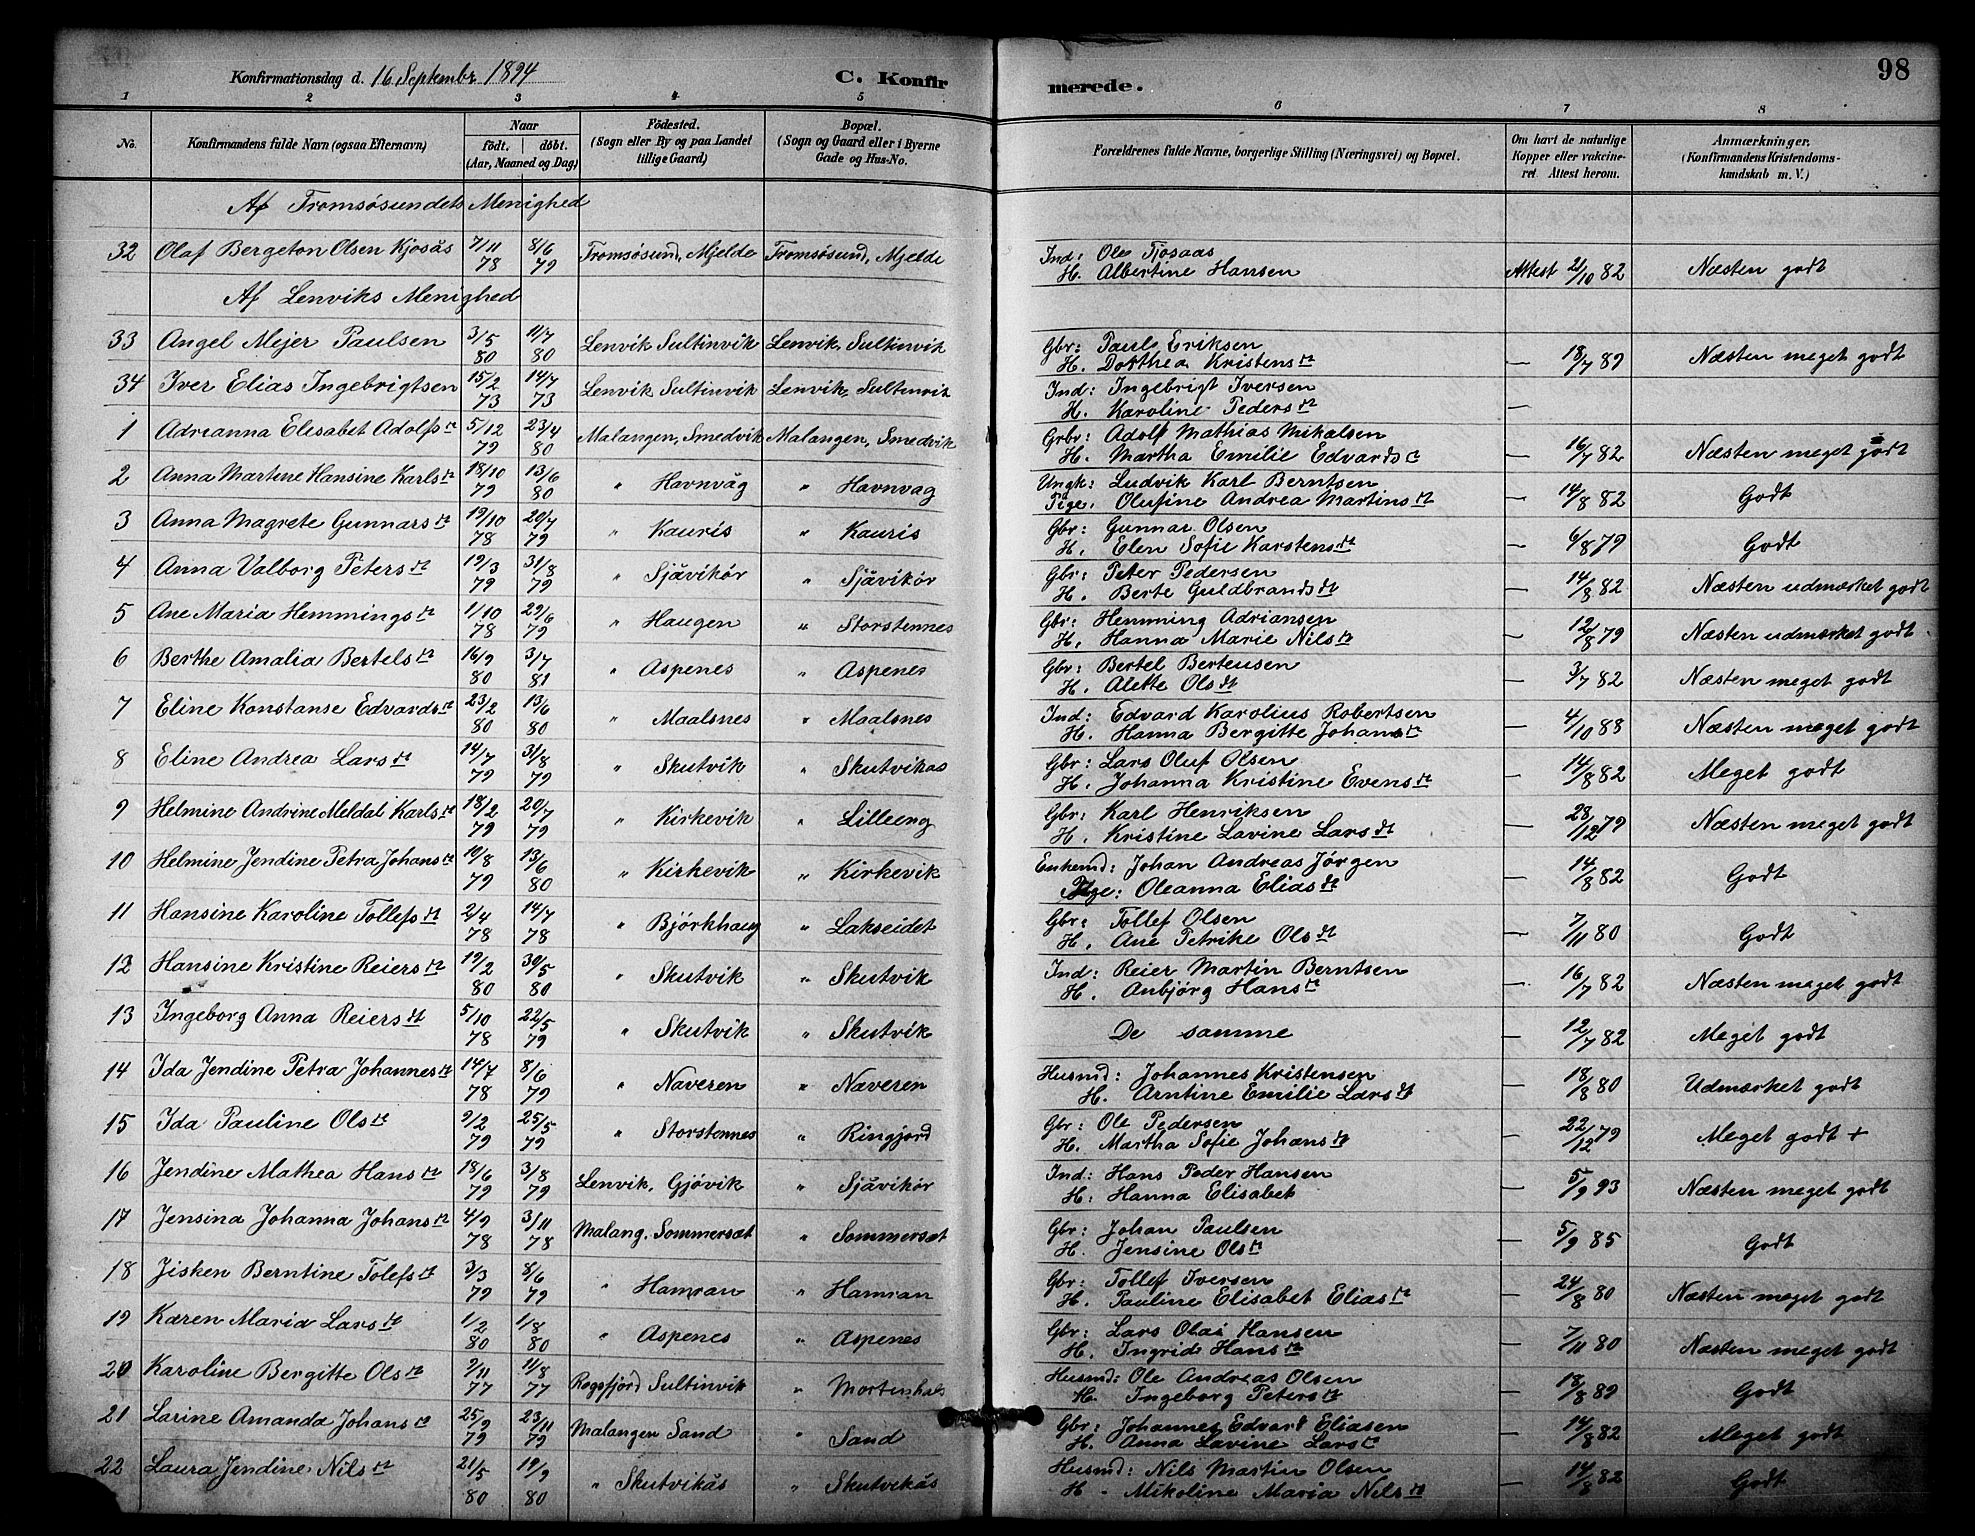 98
Konfirmationsdag d. 16 Septembr 1894 C. Konfirmerede.
1 2 3 4 5 6 7 8
No. Konfirmandens fulde Navn (ogsaa Efternavn) Naar født. døbt. (Aar, Maaned og Dag) Fødested. (Sogn eller By og paa Landet tillige Gaard) Bopæl. (Sogn og Gaard eller i Byerne Gade og Hus-No. Forældrenes fulde Navne, borgerlige Stilling (Næringsvei) og Bopæl. Om havt de naturlige Kopper eller vakcineret. Attest herom. Anmærkninger. (Konfirmandens Kristendomskundskab m. V.)
Af Tromsøsundets Menighed
32 Olaf Bergeton Olsen Kjosås 7/11 78 8/6 79 Tromsøsund, Mjelde Tromsøsund, Mjelde Ind: Ole Tjosaas H. Albertine Hansen Attest 2/10 82 Næsten godt
Af Lenviks Menighed
33 Angel Mejer Paulsen 3/5 80 11/7 80 Lenvik Sultinvik Lenvik, Sultinvik Gbr: Paul Eriksen H. Dorthea Kristensdt — 18/7 89 Næsten meget godt
34 Iver Elias Ingebrigtsen 15/2 73 14/7 73 Lenvik Sultinvik Lenvik, Sultinvik Ind: Ingebrigt Iversen H. Karoline Pedersdt —
1 Adrianna Elisabet Adolfsdt 5/12 79 23/4 80 Malangen, Smedvik Malangen, Smedvik Grbr: Adolf Mathias Mikalsen H. Martha Emilie Edvardsdt — 16/7 82 Næsten meget godt
2 Anna Martine Hansine Karlsdt 18/10 79 13/6 80 " Havnvåg " Havnvag Ungk: Ludvik Karl Berntsen Pige. Olufine Andrea Martinsdt — 14/8 82 Godt
3 Anna Magrete Gunnarsdt 19/10 78 20/7 79 " Kauris " Kauris Gbr: Gunnar Olsen H. Elen Sofie Karstensdt — 6/8 79 Godt
4 Anna Valborg Petersdt 19/3 79 31/8 79 " Sjåvikør " Sjåvikør Gbr: Peter Pedersen H. Berte Guldbrandsdt — 14/8 82 Næsten udmærket godt
5 Ane Maria Hemmingsdt 1/10 78 29/6 79 " Haugen " Storstennes Gbr: Hemming Adriansen H. Hanna Marie Nilsdt — 12/8 79 Næsten udmærket godt
6 Berthe Amalia Bertelsdt 16/9 80 3/7 81 " Aspenes " Aspenes Gbr: Bertel Berteusen H. Alette Olsdt — 3/7 82 Næsten meget godt
7 Eline Konstanse Edvardsdt 23/2 80 13/6 80 " Maalsnes " Maalsnes Ind: Edvard Karolius Robertsen H. Hanna Bergitte Johansdt — 4/10 83 Næsten meget godt
8 Eline Andrea Larsdt 14/7 79 31/8 79 " Skutvik " Skutvikas Gbr: Lars Oluf Olsen H. Johanna Kristine Evensdt — 14/8 82 Meget godt
9 Helmine Andrine Meldal Karlsdt 18/2 79 20/7 79 " Kirkevik " Lilleeng Gbr: Karl Henriksen H. Kristine Lavine Larsdt — 28/12 79 Næsten meget godt
10 Helmine Jendine Petra Johansdt 19/8 79 13/6 80 " Kirkevik " Kirkevik Enkemd: Johan Andreas Jørgen Pige: Oleanna Eliasdt — 14/8 82 Godt
11 Hansine Karoline Tollefsdt 2/4 78 14/7 78 " Bjørkhaug " Lakseidet Gbr: Tollef Olsen H. Ane Petrike Olsdt — 7/11 80 Godt
12 Hansine Kristine Reiersdt 19/2 80 30/5 80 " Skutvik " Skutvik Ind: Reier Martin Berntsen H. Anbjørg Hansdt — 16/7 82 Næsten meget godt
13 Ingeborg Anna Reiersdt 5/10 78 22/5 79 " Skutvik " Skutvik De samme — 12/7 82 Meget godt
14 Ida Jendine Petra Johannesdt 14/7 78 8/6 79 " Naveren " Næveren Husmd: Johannes Kristensen H. Arntine Emilie Larsdt — 18/8 80 Udmærket godt
15 Ida Pauline Olsdt 9/2 79 25/5 79 " Storstennes " Ringfjord Gbr: Ole Pedersen H. Martha Sofie Johansdt — 22/12 79 Meget godt +
16 Jendine Mathea Hansdt 18/6 79 3/8 79 Lenvik, Gjøvik " Sjåvikør Ind: Hans Peder Hansen H: Hanna Elisabet — 5/9 93 Næsten meget godt
17 Jensina Johanna Johansdt 4/9 78 3/11 78 Malang. Sommersæt " Sommersæt Gbr: Johan Paulsen H. Jensine Olsdt — 5/9 85 Godt
18 Jisken Berntine Tolefsdt 3/3 79 8/6 79 " Hamran " Hamran Gbr: Tollef Iversen H. Pauline Elisabet Eliasdt — 24/8 80 Næsten meget godt
19 Karen Maria Larsdt 1/2 80 1/8 80 " Aspenes " Aspenes Gbr: Lars Olai Hansen H. Ingrid Hansdt — 7/11 80 Næsten meget godt
20 Karoline Bergitte Olsdt 2/11 77 1/8 77 Rossfjord Sultinvik " Mortenhals Husmd: Ole Andreas Olsen H. Ingeborg Petersdt — 18/8 89 Godt
21 Larine Amanda Johansdt 25/9 79 23/11 79 Malangen Sand " Sand Gbr: Johannes Edvart Eliasen H. Anna Lavine Larsdt — 14/8 82 Meget godt
22 Laura Jendine Nilsdt 21/5 80 19/9 80 " Skutvikås " Skutvikås Husmd: Nils Martin Olsen H - Mikoline Maria Nilsdt — 14/8 82 Godt